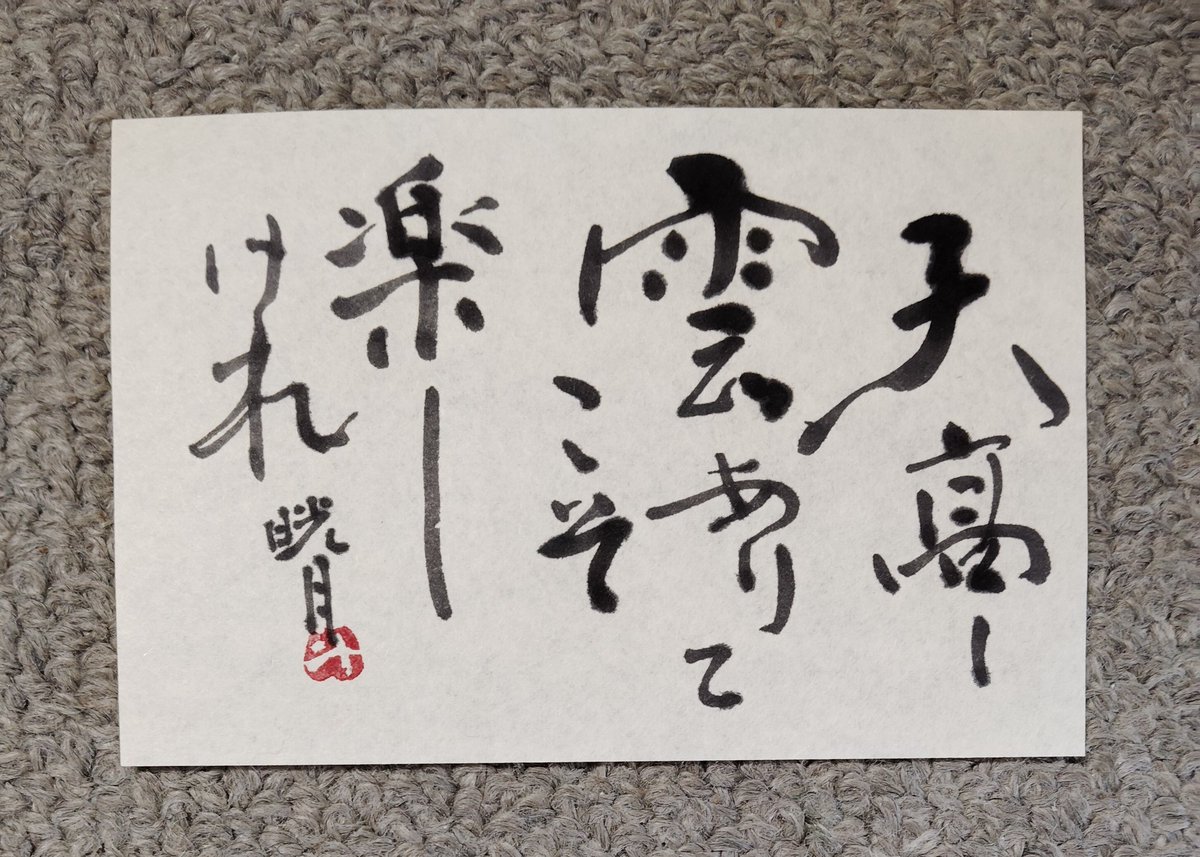 天高し
雲ありて
こそ
楽し
けれ
晄月